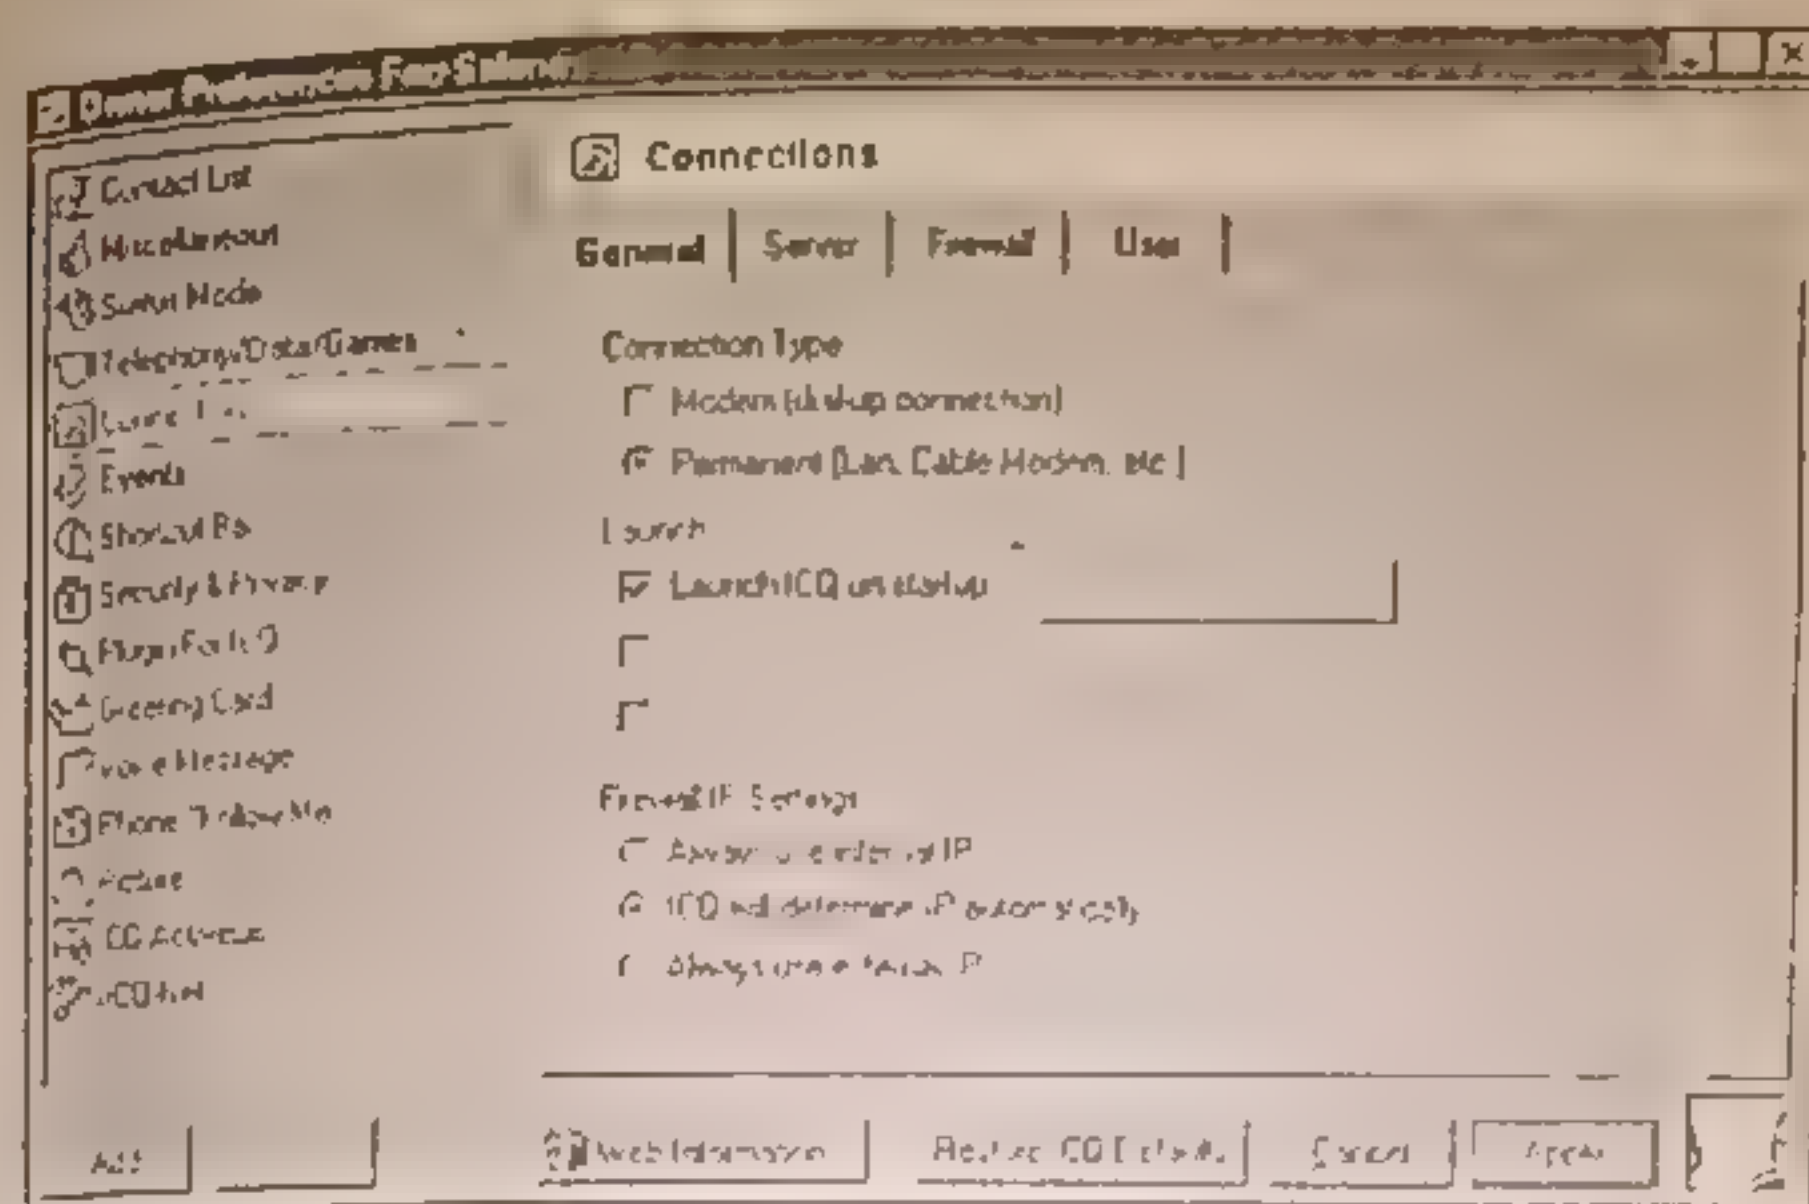 Owner Preferences For
Contact List
Miscellaneous
Status Mode
Telephony/Data/Games
Events
Shortcut Bar
Security & Privacy
Plugin For ICQ
Greeting Card
Voice Message
Phone "Follow Me"
Picture
ICQ
Connections
General
Server
Firewall
User
Connection Type
Modem (dial-up connection)
Permanent (Lan, Cable Modem, etc.)
Launch
Launch ICQ on startup
Firewall IP Settings
IP
ICQ will determine IP automatically
Always use IP
Add
Web Information
Restore ICQ Defaults
Cancel
Apply